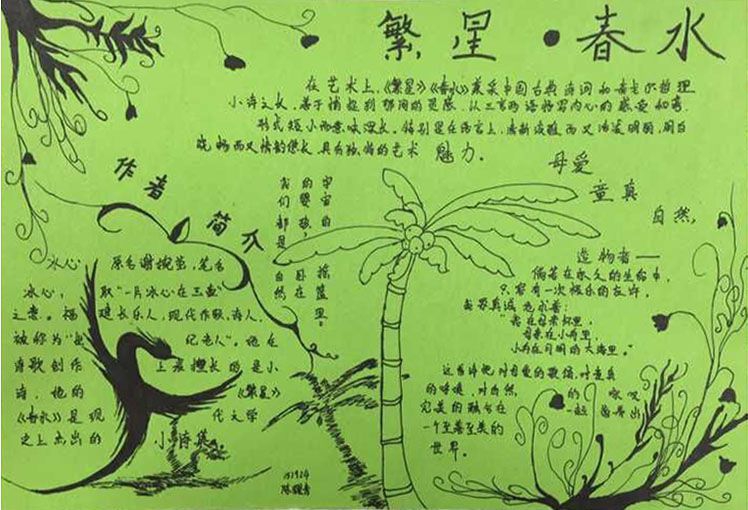 繁星·春水
在艺术上,《繁星》《春水》兼采中国古典诗词和泰戈尔哲理
小诗之长,善于捕捉刹那间的灵感,以三言两语抒写内心的感受和
形式短小而意味深长。特别是在语言上,清新淡雅而又清凌明丽,明白
晓畅而又情韵悠长,具有独特的艺术 魅力。
母爱
童真
自然,
作者简介
冰心 原名谢婉莹,笔名
冰心, 取“一片冰心在玉壶”
之意。福建长乐人,现代作家,诗人,
被称为“世纪老人”。她在
诗歌创作上最擅长的是小
诗,她的《繁星》
《春水》是现代文学
之上杰出的小诗集。
我们都是自然
的婴孩卧在
宇宙的摇篮里。
造物者——
倘若在永久的生命中,
只容有一次极乐的应许。
我要真诚地求着:
“我在母亲怀里,
母亲在小舟里,
小舟在月明的大海里。”
这首诗把对母爱的歌颂,对童真
的呼唤,对自然的咏叹
完美的融合在一起
一个至善至美的
世界。